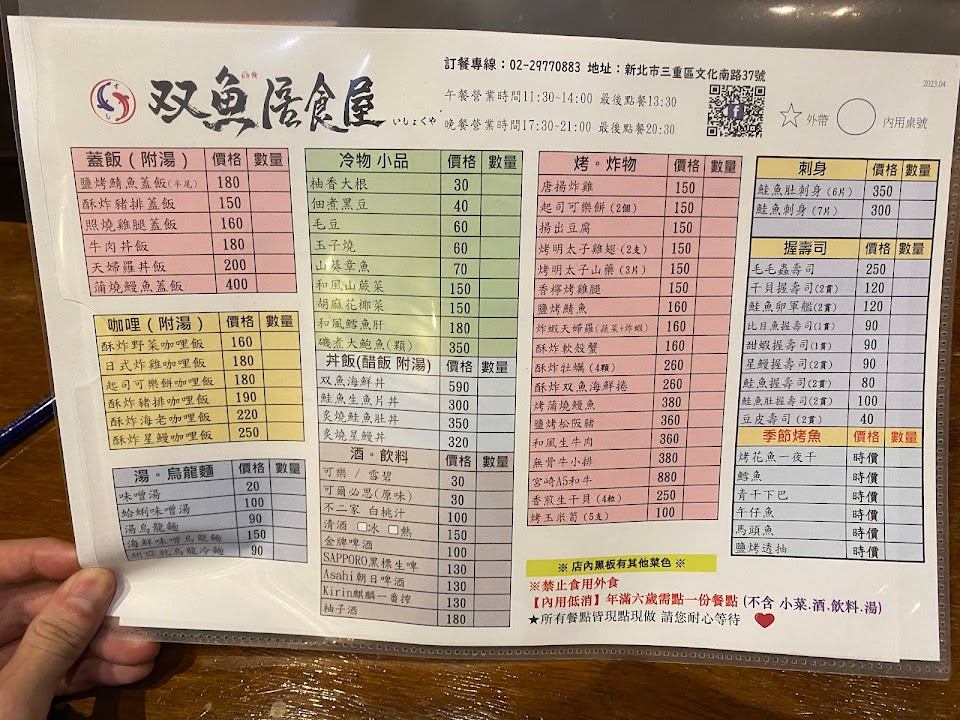 訂餐專線：02-29770883 地址：新北市三重區文化南路37號
2023.04
双魚居食屋
いしょくや
午餐營業時間11:30~14:00 最後點餐13:30
晚餐營業時間17:30~21:00 最後點餐20:30
☆外帶 ○內用桌號
蓋飯（附湯） 價格 數量
鹽烤鯖魚蓋飯(半尾) 180
酥炸豬排蓋飯 150
照燒雞腿蓋飯 160
牛肉丼飯 180
天婦羅丼飯 200
蒲燒鰻魚蓋飯 400
咖哩（附湯） 價格 數量
酥炸野菜咖哩飯 160
日式炸雞咖哩飯 180
起司可樂餅咖哩飯 180
酥炸豬排咖哩飯 190
酥炸海老咖哩飯 220
酥炸星鰻咖哩飯 250
湯。烏龍麵 價格 數量
味噌湯 20
蛤蜊味噌湯 100
湯烏龍麵 90
海鮮味噌烏龍麵 150
胡麻乾烏龍冷麵 90
冷物 小品 價格 數量
柚香大根 30
佃煮黑豆 40
毛豆 60
玉子燒 60
山葵章魚 70
和風山蕨菜 150
胡麻花椰菜 150
和風鱈魚肝 180
磯煮大鮑魚(顆) 350
丼飯(醋飯 附湯) 價格 數量
双魚海鮮丼 590
鮭魚生魚片丼 300
炙燒鮭魚肚丼 350
炙燒星鰻丼 320
酒。飲料 價格 數量
可樂 / 雪碧 30
可爾必思(原味) 30
不二家 白桃汁 100
清酒 □冰 □熱 150
金牌啤酒 100
SAPPORO黑標生啤 130
Asahi朝日啤酒 130
Kirin麒麟一番搾 130
柚子酒 180
烤。炸物 價格 數量
唐揚炸雞 150
起司可樂餅(2個) 150
揚出豆腐 150
烤明太子雞翅(2支) 150
烤明太子山藥(3片) 150
香檸烤雞腿 150
鹽烤鯖魚 160
炸蝦天婦羅(蔬菜+炸蝦) 160
酥炸軟殼蟹 160
酥炸牡蠣(4顆) 260
酥炸双魚海鮮捲 260
烤蒲燒鰻魚 380
鹽烤松阪豬 360
和風生牛肉 360
無骨牛小排 380
宮崎A5和牛 880
香煎生干貝(4粒) 250
烤玉米筍(5支) 100
刺身 價格 數量
鮭魚肚刺身(6片) 350
鮭魚刺身(7片) 300
握壽司 價格 數量
毛毛蟲壽司 250
干貝握壽司(2貫) 120
鮭魚卵軍艦(2貫) 120
比目魚握壽司(1貫) 90
甜蝦握壽司(1貫) 90
星鰻握壽司(2貫) 90
鮭魚握壽司(2貫) 80
鮭魚肚握壽司(2貫) 100
豆皮壽司(2貫) 40
季節烤魚 價格 數量
烤花魚一夜干 時價
鱈魚 時價
青干下巴 時價
午仔魚 時價
馬頭魚 時價
鹽烤透抽 時價
※ 店內黑板有其他菜色 ※
※禁止食用外食
【內用低消】年滿六歲需點一份餐點(不含 小菜.酒.飲料.湯)
★所有餐點皆現點現做 請您耐心等待